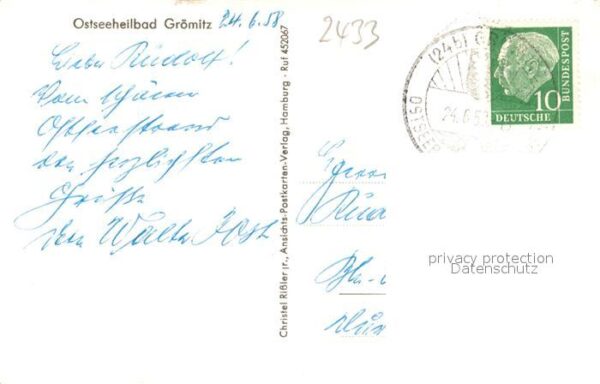 Ostseeheilbad Grömitz 24.6.58
2433
Lieber Rudolf!
Vom schönen
Ostseestrand
die herzlichsten
Grüße
Dein Walter
Christel Rißler jr., Ansichts-Postkarten-Verlag, Hamburg · Ruf 452067
(24b)
24.6.5
OSTSEE
10
DEUTSCHE
BUNDESPOST
Herrn
privacy protection
Datenschutz